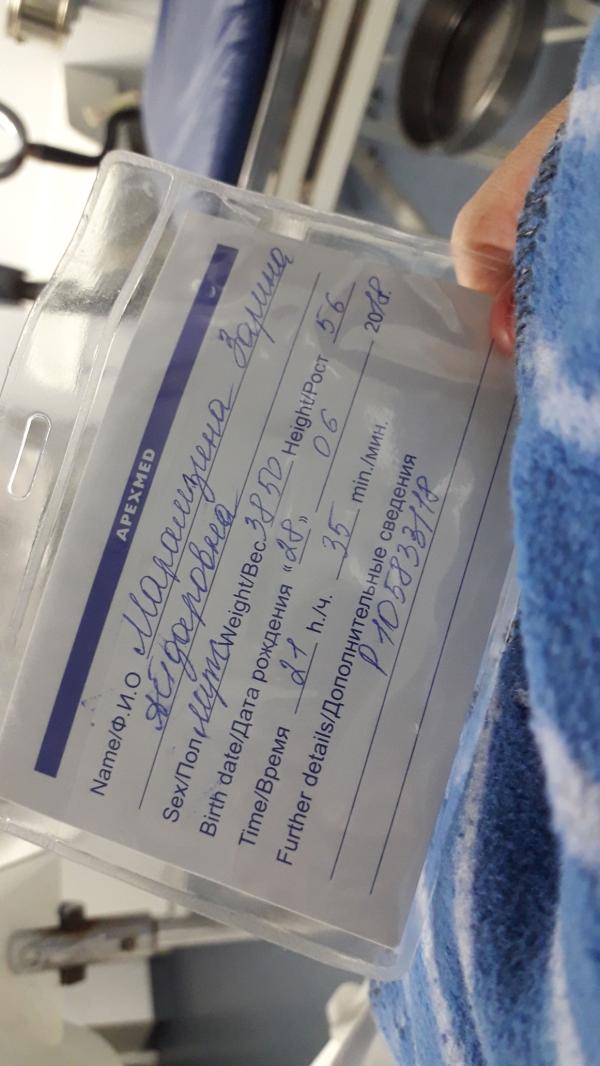 APEXMED
Name/Ф.И.О Марамзина Зарина
Айдаровна
Sex/Пол муж Weight/Вес 3850 Height/Рост 56
Birth date/Дата рождения «28» 06 2018.
Time/Время 21 h./ч. 35 min./мин.
Further details/Дополнительные сведения
P105833118